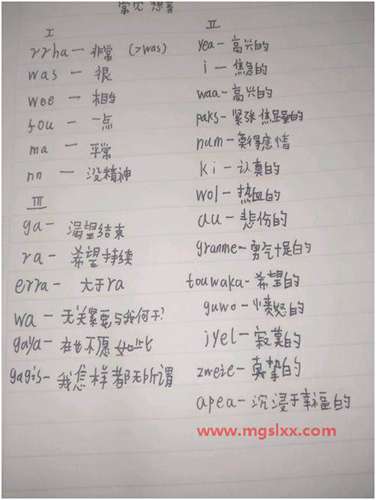 常见 想音
I
rrha — 非常 (>was)
was — 很
wee — 相当
fou — 一点
ma — 平常
nn — 没精神
III
ga — 渴望结束
ra — 希望持续
erra — 大于ra
wa — 无关紧要与我何干?
gaya — 在也不愿如此
gagis — 我怎样都无所谓
II
yea — 高兴的
i — 焦急的
waa — 高兴的
paks — 紧张 的
num — 莫得感情
ki — 认真的
wol — 热血的
au — 悲伤的
granme — 勇气十足的
touwaka — 希望的
guwo — 愤怒的
jyel — 寂寞的
zweie — 真挚的
apea — 沉浸于幸福的
www.mgslxx.com